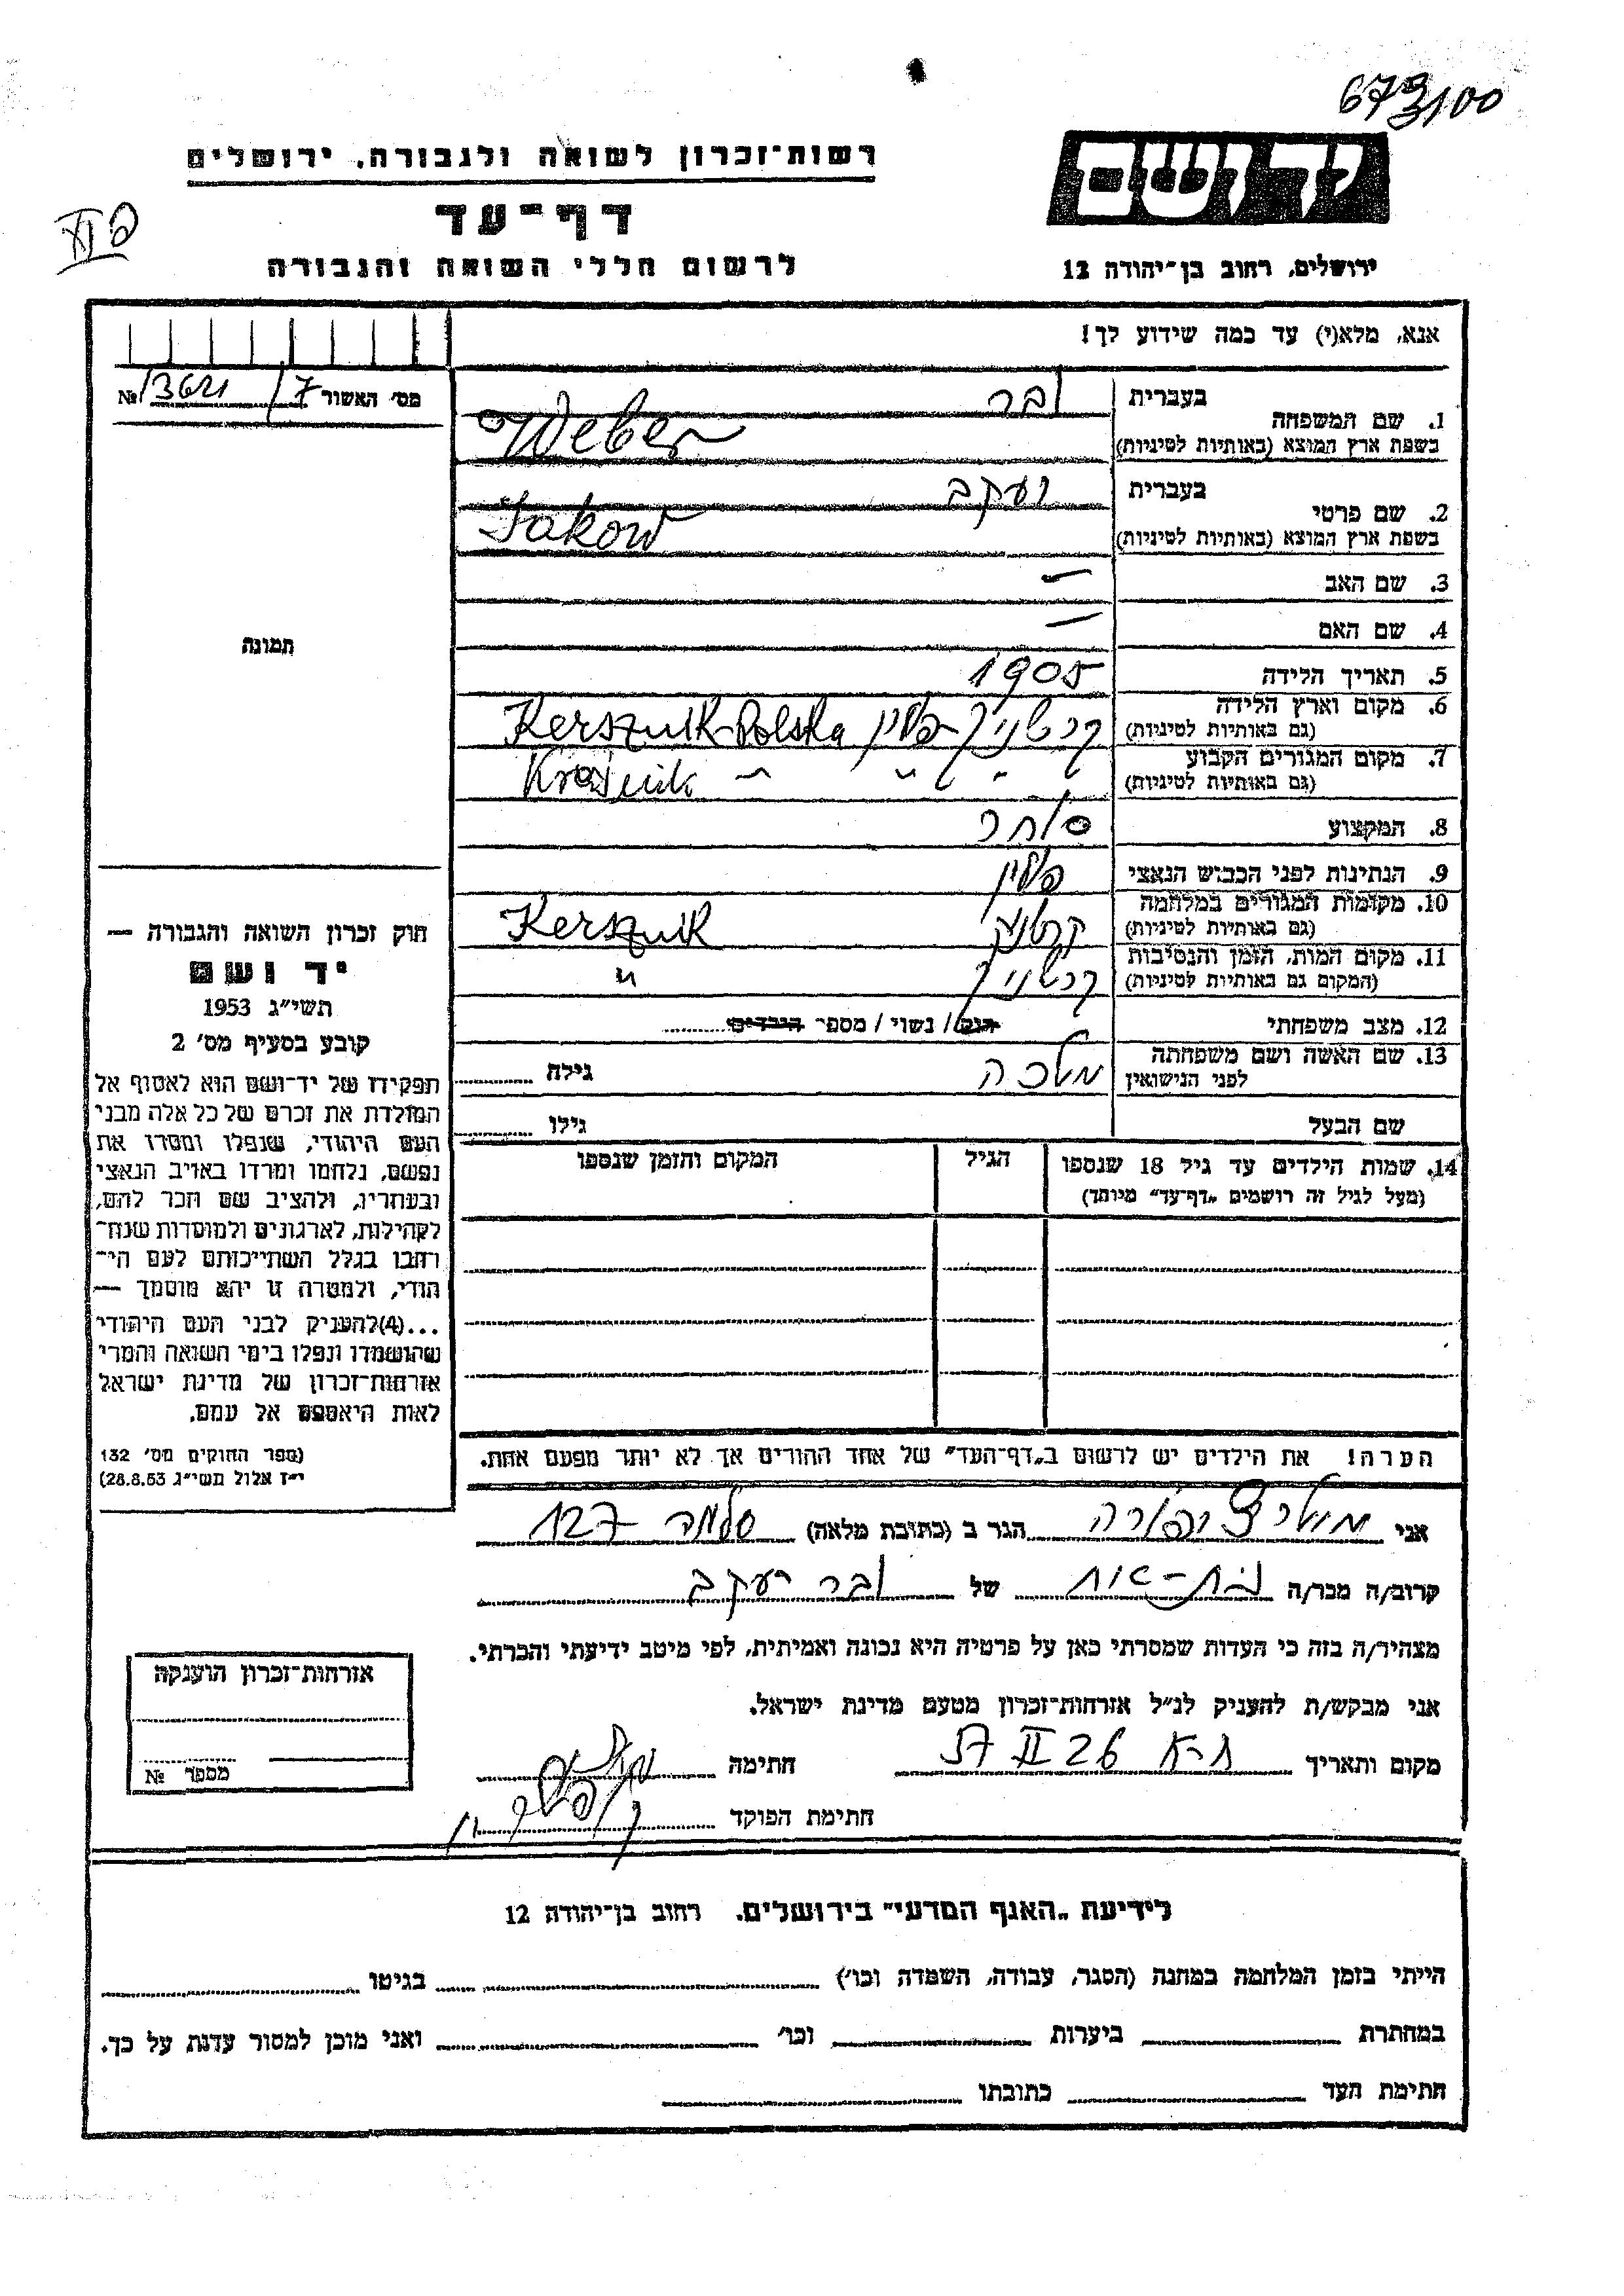 679/100
רשות-זכרון לשואה ולגבורה, ירושלים
יד ושם
דף-עד
לרשום חללי השואה והגבורה
ירושלים, רחוב בן-יהודה 12
אנא, מלא(י) עד כמה שידוע לך!
מס׳ האשור № 13621/7
1. שם המשפחה בעברית ובר
בשפת ארץ המוצא (באותיות לטיניות) Weber
2. שם פרטי בעברית יעקב
בשפת ארץ המוצא (באותיות לטיניות) Jakow
3. שם האב —
4. שם האם —
5. תאריך הלידה 1905
6. מקום וארץ הלידה (גם באותיות לטיניות) קרשניק-פולין Kersznik-Polska
7. מקום המגורים הקבוע (גם באותיות לטיניות) " " " Kraśnik
8. המקצוע סוחר
9. הנתינות לפני הכבוש הנאצי פולין
10. מקומות המגורים במלחמה (גם באותיות לטיניות) קרשניק Kersznik
11. מקום המות, הזמן והנסיבות (המקום גם באותיות לטיניות) קרשניק "
12. מצב משפחתי רווק / נשוי / מספר הילדים
13. שם האשה ושם משפחתה לפני הנישואין מלכה גילה
שם הבעל גילו
14. שמות הילדים עד גיל 18 שנספו הגיל המקום והזמן שנספו
(מעל לגיל זה רושמים „דף-עד" מיוחד)
הערה! את הילדים יש לרשום ב„דף-העד" של אחד ההורים אך לא יותר מפעם אחת.
תמונה
חוק זכרון השואה והגבורה —
יד ושם
תשי״ג 1953
קובע בסעיף מס׳ 2
תפקידו של יד-ושם הוא לאסוף אל
המולדת את זכרם של כל אלה מבני
העם היהודי, שנפלו ומסרו את
נפשם, נלחמו ומרדו באויב הנאצי
ובעוזריו, ולהציב שם וזכר להם,
לקהילות, לארגונים ולמוסדות שנח-
רבו בגלל השתייכותם לעם הי-
הודי, ולמטרה זו יהא מוסמך —
...(4)להעניק לבני העם היהודי
שהושמדו ונפלו בימי השואה והמרי
אזרחות-זכרון של מדינת ישראל
לאות היאספם אל עמם.
(ספר החוקים מס׳ 132
י״ז אלול תשי״ג 28.8.53)
אני מילר ציפורה הגר ב (כתובת מלאה) סלמה 127
קרוב/ה מכר/ה בת-אחות של ובר יעקב
מצהיר/ה בזה כי העדות שמסרתי כאן על פרטיה היא נכונה ואמיתית, לפי מיטב ידיעתי והכרתי.
אני מבקש/ת להעניק לנ״ל אזרחות-זכרון מטעם מדינת ישראל.
מקום ותאריך ת-א 26 II 57 חתימה
חתימת הפוקד
אזרחות-זכרון הוענקה
מספר №
לידיעת „האגף המדעי" בירושלים, רחוב בן-יהודה 12
הייתי בזמן המלחמה במחנה (הסגר, עבודה, השמדה וכו׳) בגיטו
במחתרת ביערות וכו׳ ואני מוכן למסור עדות על כך.
חתימת העד כתובתו